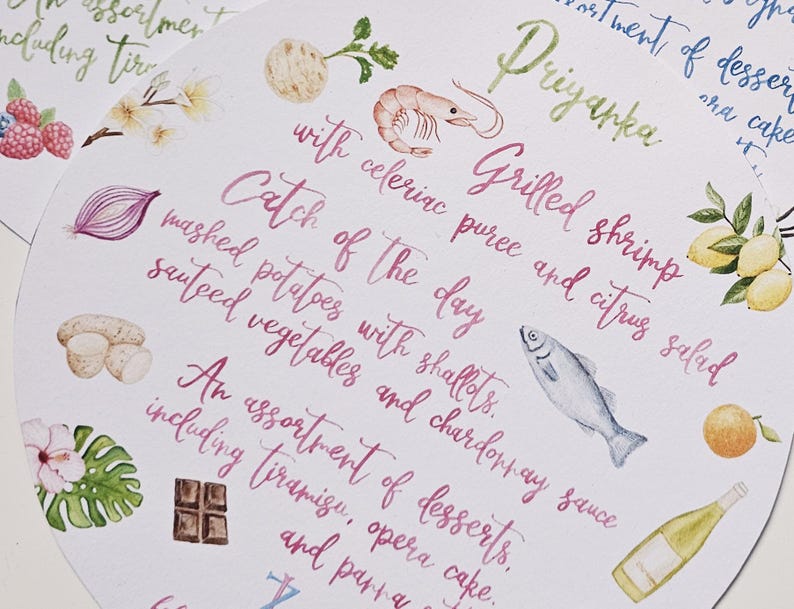 An assortment
including
assortment, of desserts
opera cake,
Priyanka
Grilled shrimp
with celeriac puree and citrus salad
Catch of the day
mashed potatoes with shallots,
sauteed vegetables and chardonnay sauce
An assortment of desserts,
including tiramisu, opera cake,
and panna